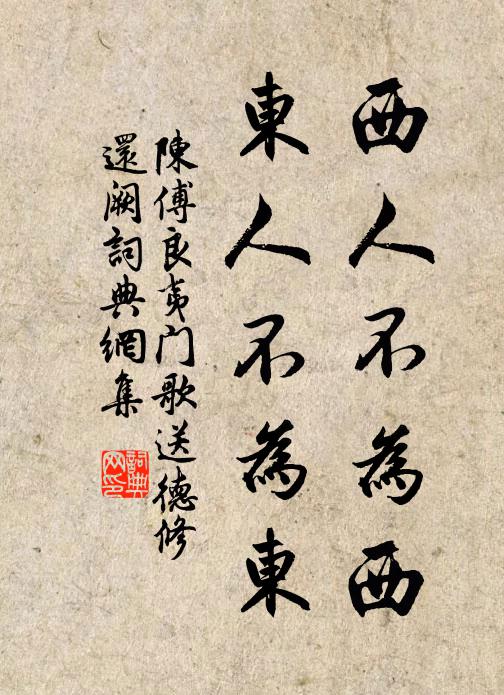 西人不為西
東人不為東
陳傅良夷门歌送德修
還阙詞典網集
詞典网印